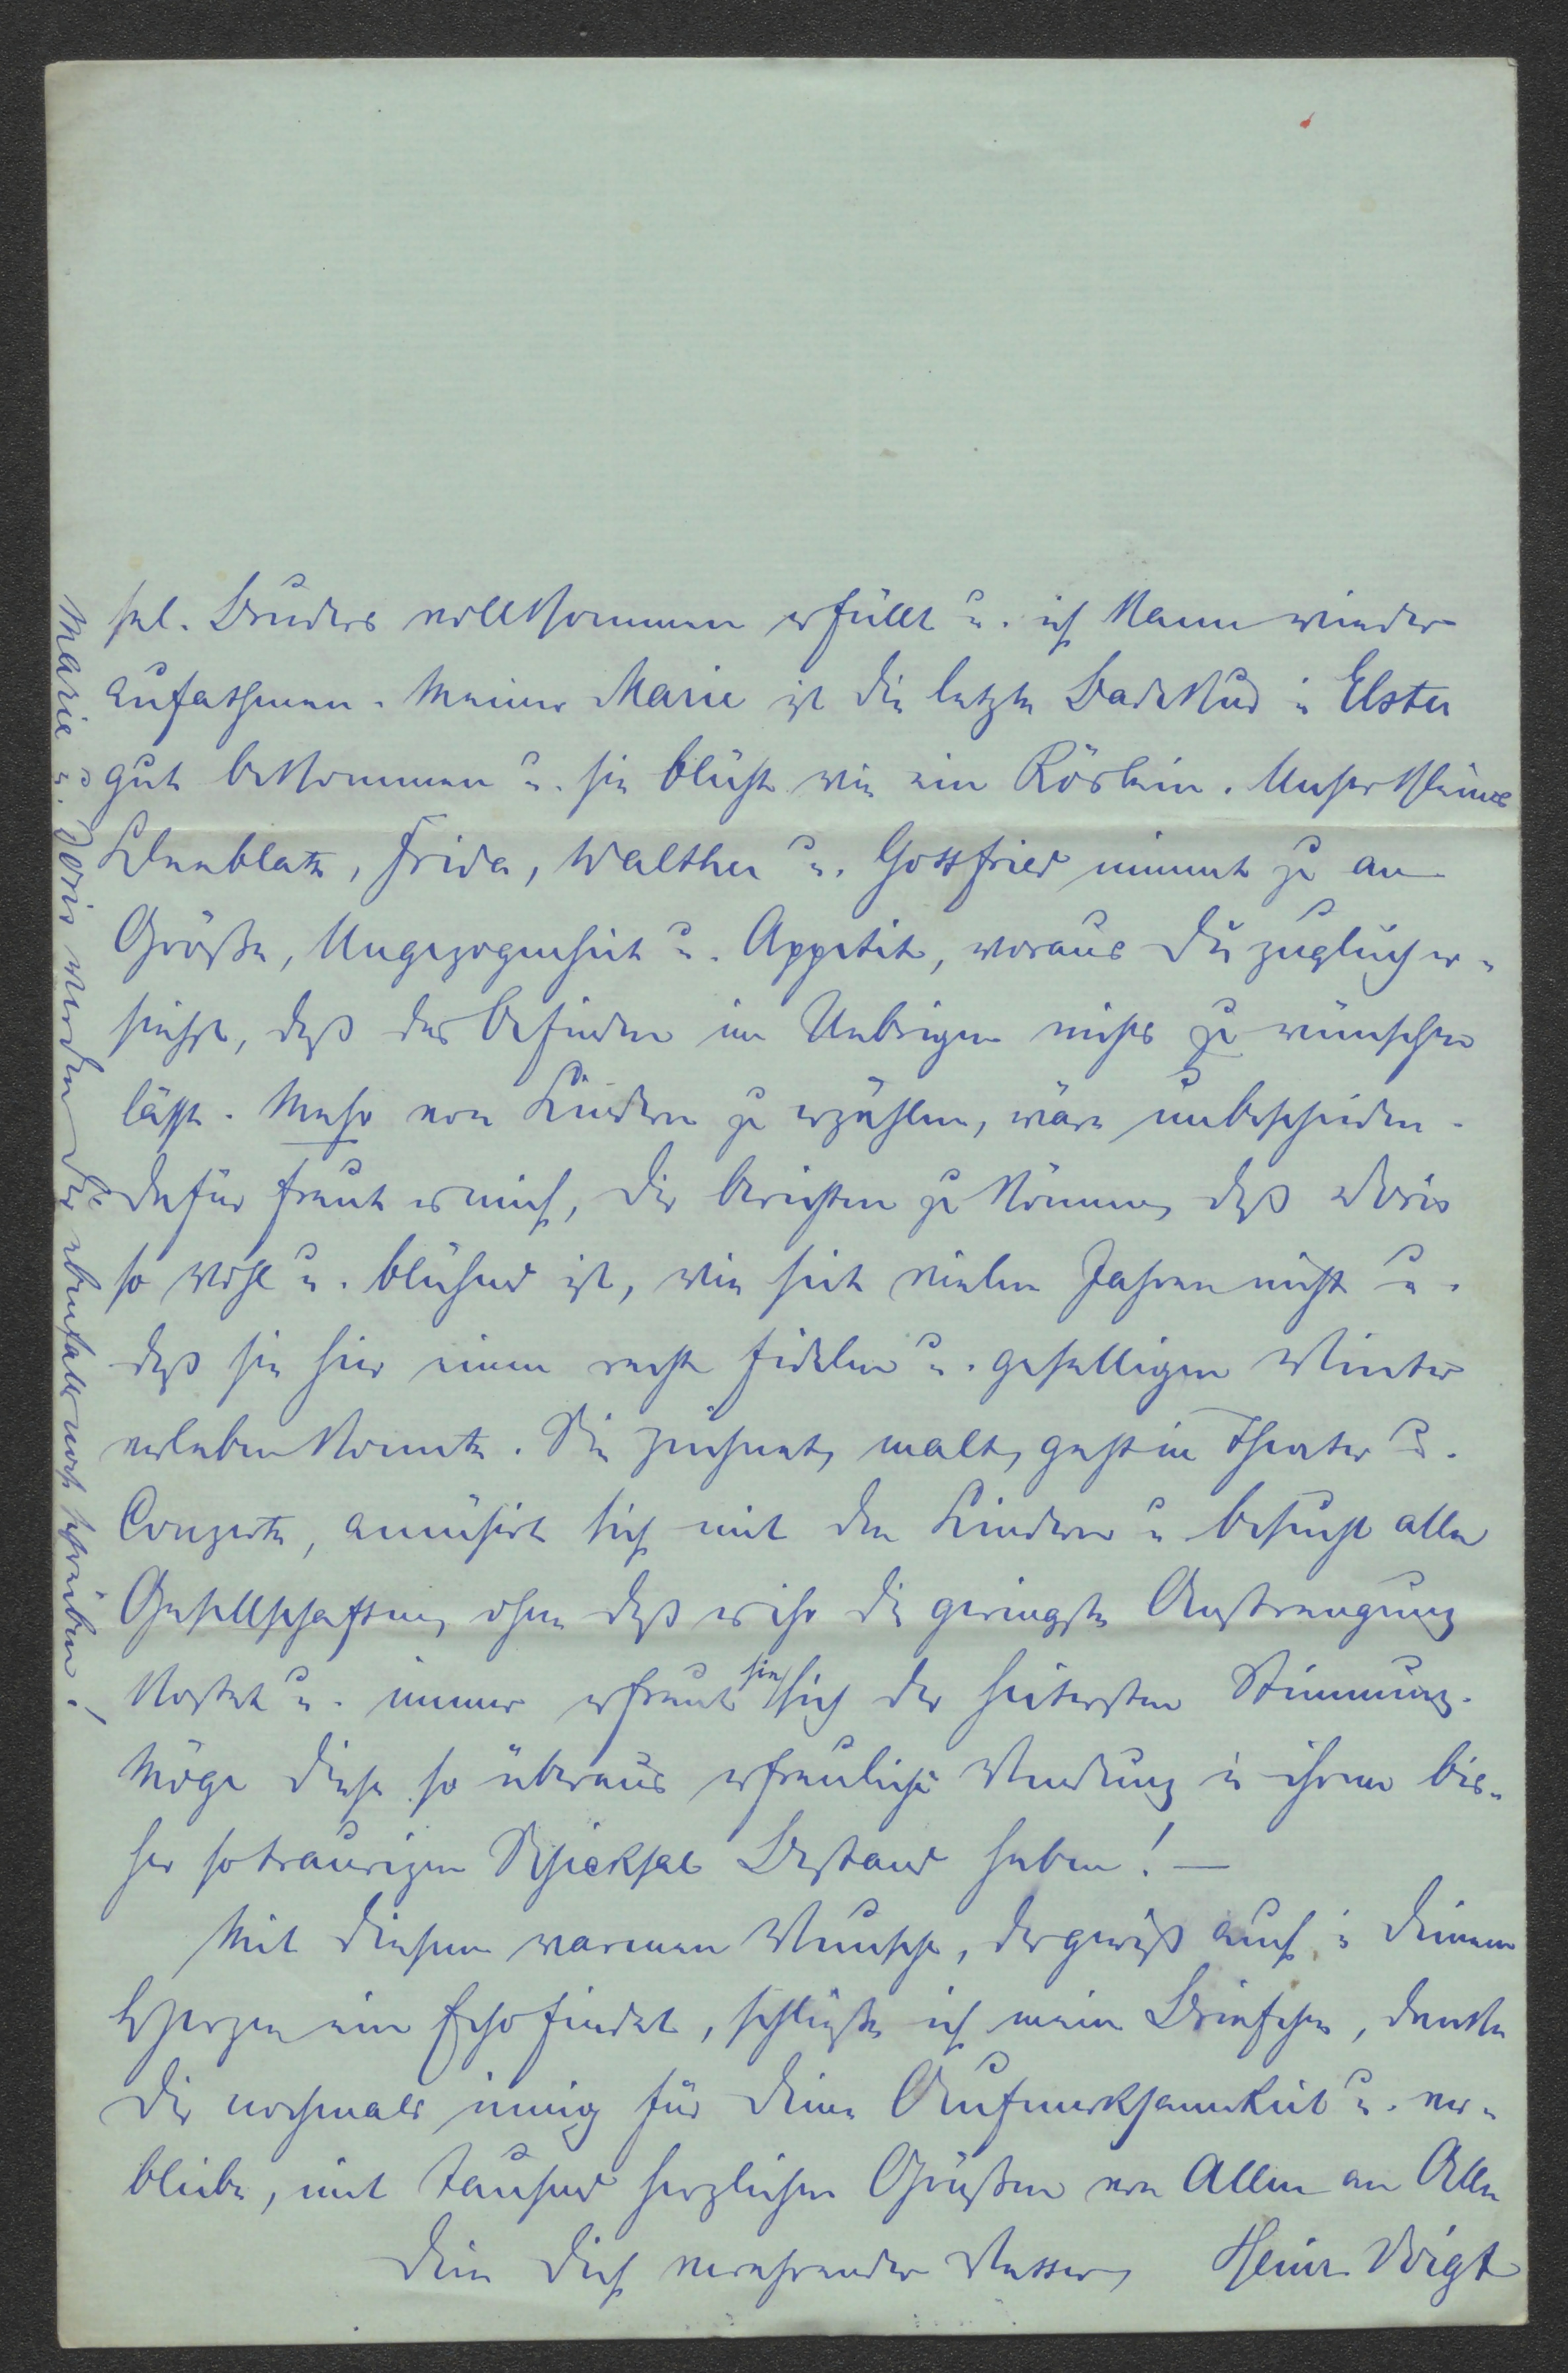 sel. Bruders vollkommen erfüllt u. ich kann wieder
aufathmen. Meiner Marie ist die letzte Badekur in Elster
gut bekommen u. sie blüht wie ein Röslein. Unser kleines
Kleeblatt, Frida, Walther u. Gottfried nimmt zu an
Größe, Ungezogenheit u. Appetit, woraus Du zugleich er-
siehst, daß das Befinden im Uebrigen nichts zu wünschen
läßt. Mehr von Kindern zu erzählen, wäre unbescheiden.
Dafür freut es mich, Dir berichten zu können, daß Doris
so wohl u. blühend ist, wie seit vielen Jahren nicht u.
daß sie hier einen recht fidelen u. geselligen Winter
verleben konnte. Sie zeichnet, malt, geht in Theater u.
Conzerte, amüsirt sich mit den Kindern u. besucht alle
Gesellschaften, ohne daß es ihr die geringste Anstrengung
kostet u. immer erfreut sie sich der heitersten Stimmung.
Möge diese so überaus erfreuliche Wendung in ihrem bis-
her so traurigen Schicksal Bestand haben! —
Mit diesem warmen Wunsche, der gewiß auch in Deinem
Herzen ein Echo findet, schließe ich mein Briefchen, danke
Dir nochmals innig für Deine Aufmerksamkeit u. ver-
bleibe, mit tausend herzlichen Grüßen von Allen an Alle
Dein Dich verehrender Vetter, Heinr. Voigt
Marie u. Doris werden Dir ebenfalls noch schreiben!